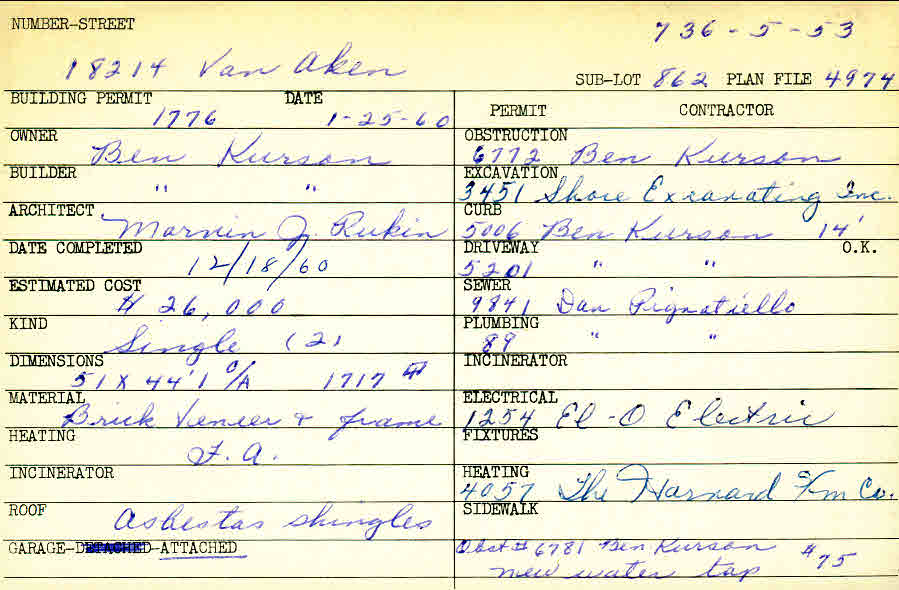 NUMBER-STREET
736-5-53
18214 Van Aken
SUB-LOT 862 PLAN FILE 4974
BUILDING PERMIT DATE
1776 1-25-60
OWNER
Ben Kurson
BUILDER
" "
ARCHITECT
Marvin J. Rukin
DATE COMPLETED
12/18/60
ESTIMATED COST
# 26,000
KIND
Single (2)
DIMENSIONS
51 X 44'1 O/A 1717
MATERIAL
Brick Veneer & frame
HEATING
F. A.
INCINERATOR
ROOF
Asbestas shingles
GARAGE-DETACHED-ATTACHED
PERMIT CONTRACTOR
OBSTRUCTION
6772 Ben Kurson
EXCAVATION
3451 Shore Excavating Inc.
CURB
5006 Ben Kurson 14'
DRIVEWAY O.K.
5201 " "
SEWER
9841 Dan Pignatiello
PLUMBING
89 " "
INCINERATOR
ELECTRICAL
1254 El-O Electric
FIXTURES
HEATING
4057 The Harnard Co.
SIDEWALK
Obst # 6781 Ben Kurson #75
new water tap